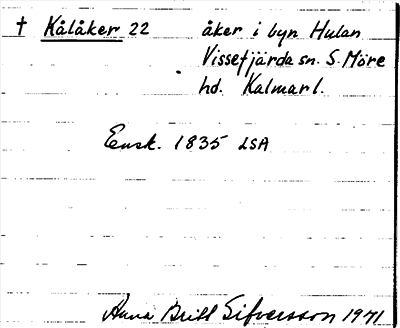 † Kålåker 22 åker i byn Hulan
Vissefjärda sn. S. Möre
hd. Kalmar l.
Ensk. 1835 LSA
Anna Britt Sifversson 1971